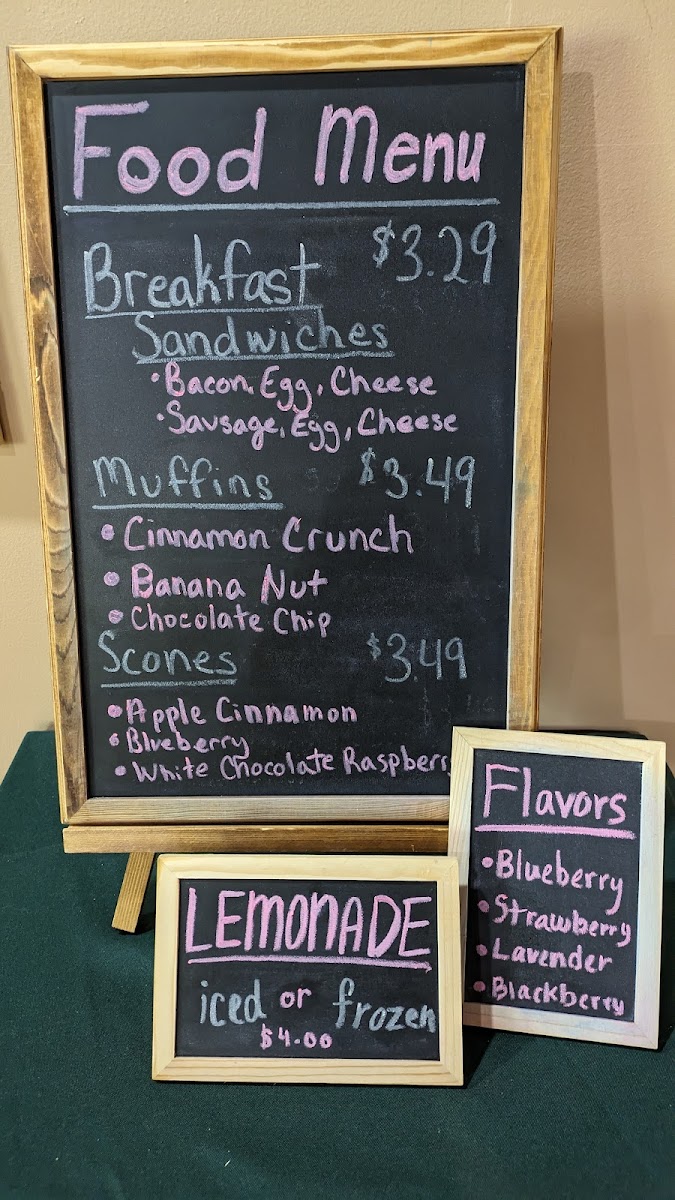 Food Menu
Breakfast $3.29
Sandwiches
• Bacon, Egg, Cheese
• Sausage, Egg, Cheese
Muffins $3.49
• Cinnamon Crunch
• Banana Nut
• Chocolate Chip
Scones $3.49
• Apple Cinnamon
• Blueberry
• White Chocolate Raspberry
Flavors
• Blueberry
• Strawberry
• Lavender
• Blackberry
LEMONADE
iced or frozen
$4.00